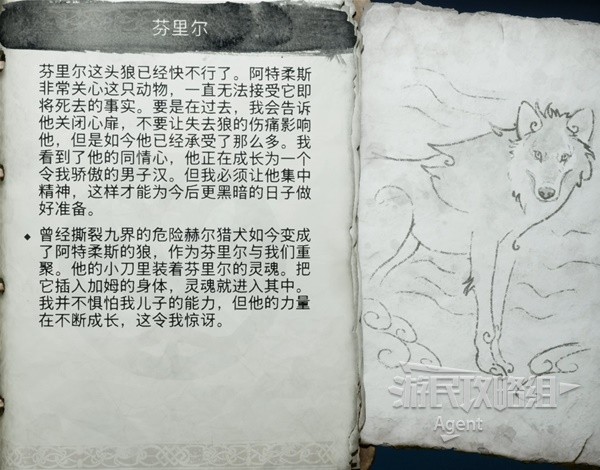 芬里尔
芬里尔这头狼已经快不行了。阿特柔斯
非常关心这只动物，一直无法接受它即
将死去的事实。要是在过去，我会告诉
他关闭心扉，不要让失去狼的伤痛影响
他，但是如今他已经承受了那么多。我
看到了他的同情心，他正在成长为一个
令我骄傲的男子汉。但我必须让他集中
精神，这样才能为今后更黑暗的日子做
好准备。
◆ 曾经撕裂九界的危险赫尔猎犬如今变成
了阿特柔斯的狼，作为芬里尔与我们重
聚。他的小刀里装着芬里尔的灵魂。把
它插入加姆的身体，灵魂就进入其中。
我并不惧怕我儿子的能力，但他的力量
在不断成长，这令我惊讶。
游民攻略组
Agent